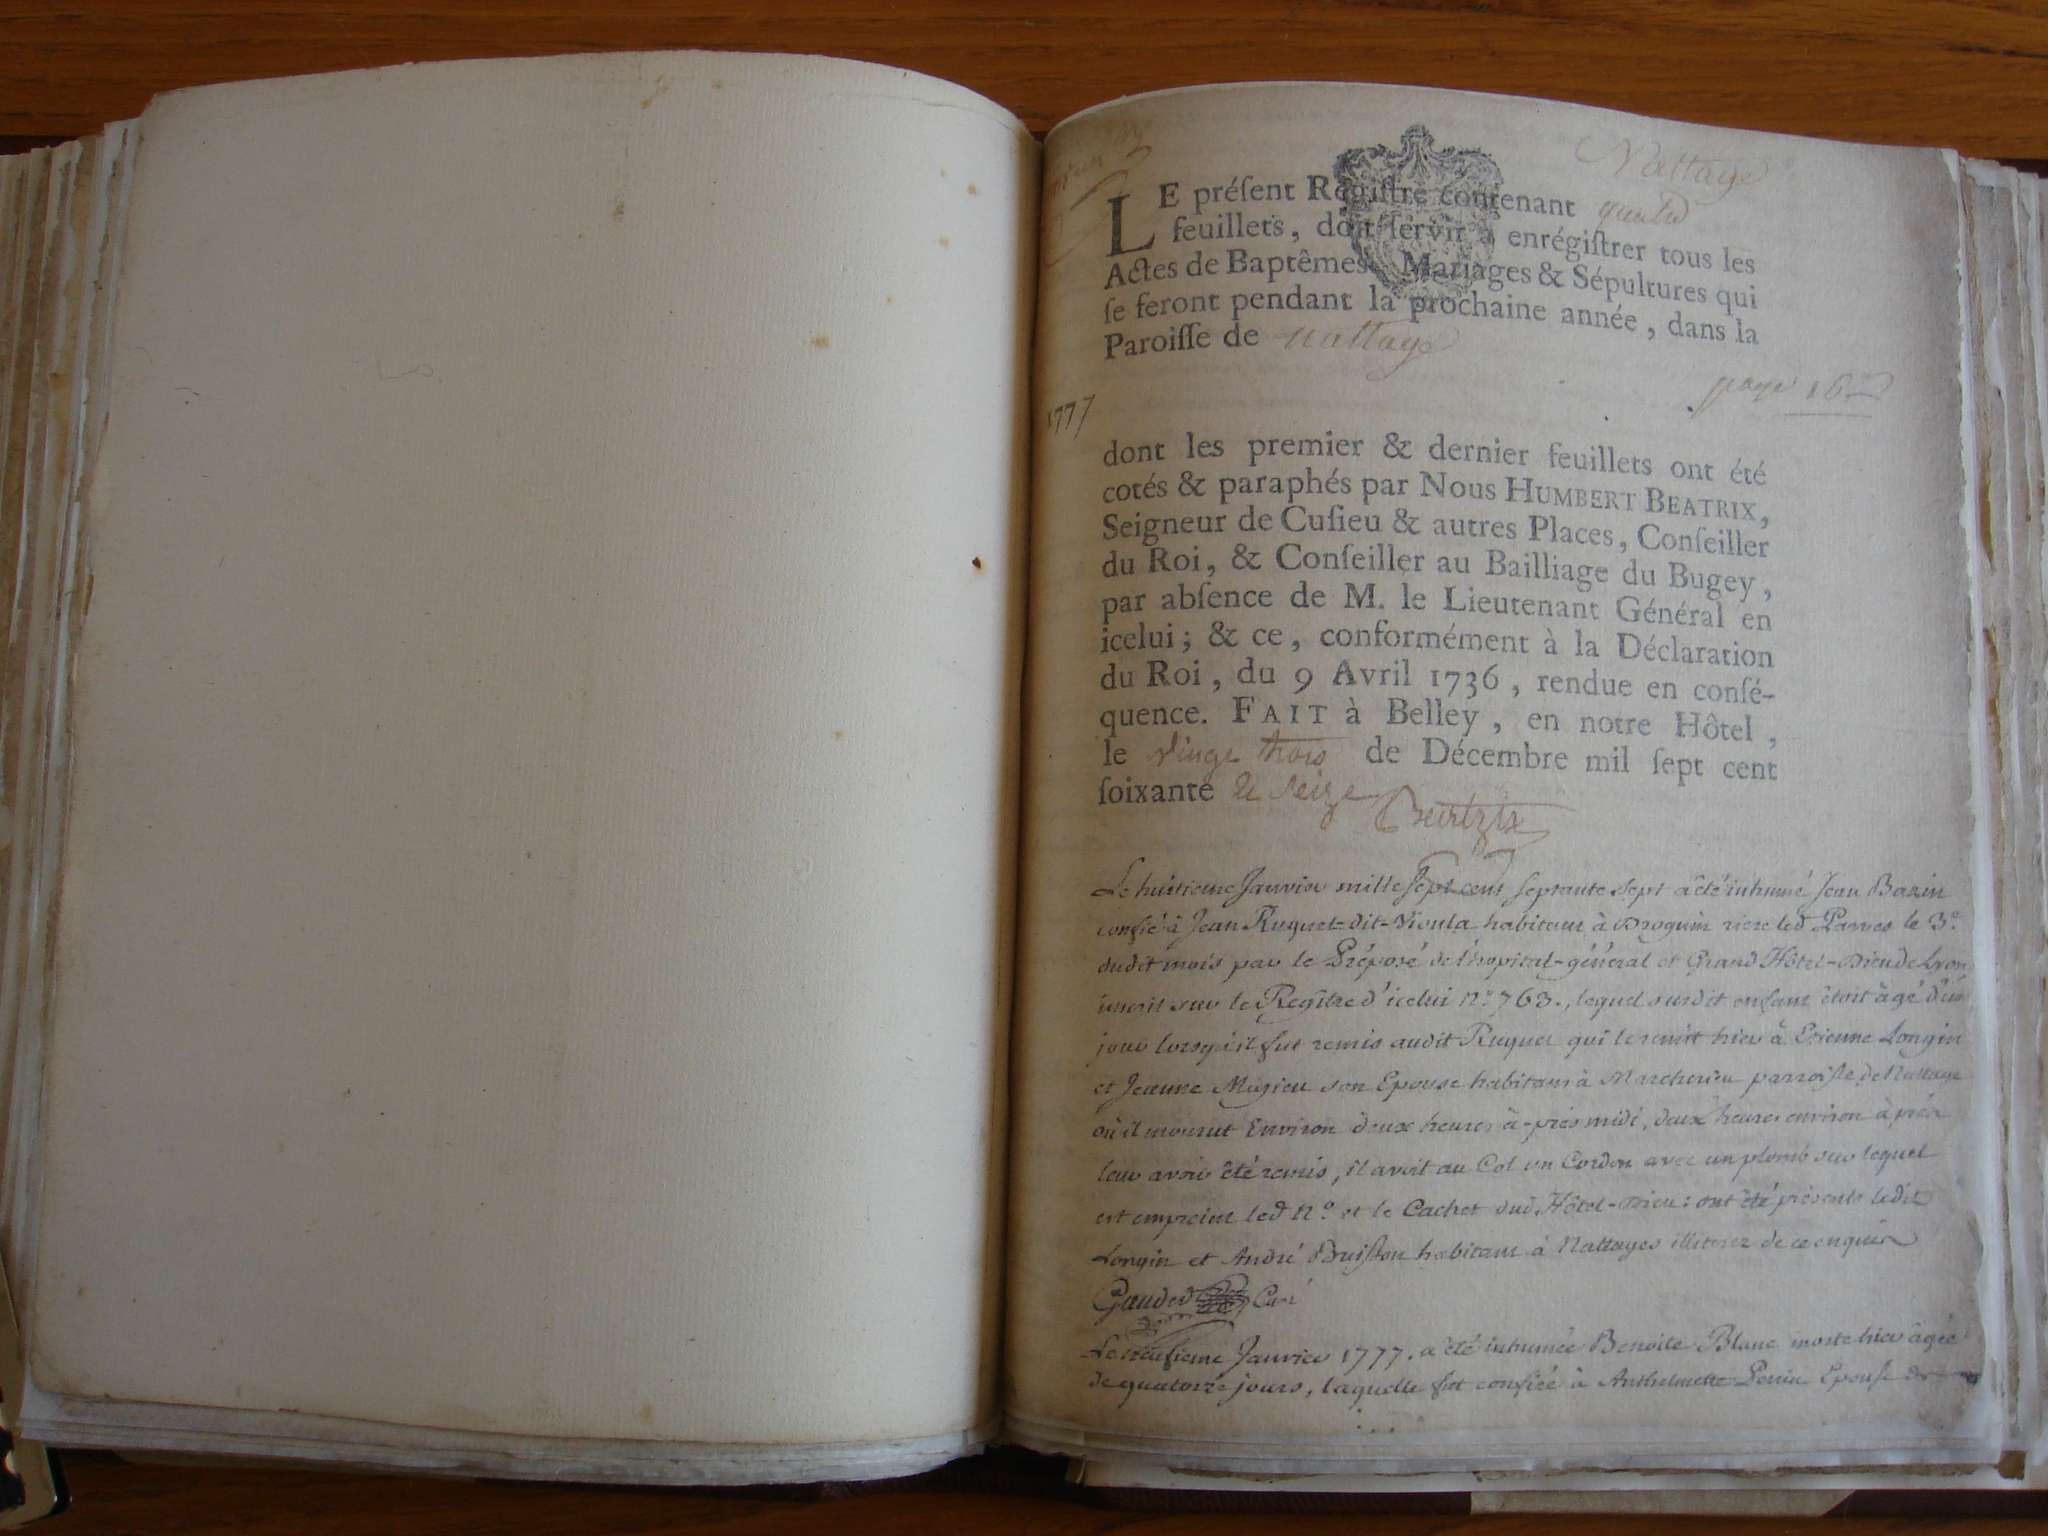 Nattage
LE préſent Régiſtre contenant quatre
feuillets, doit ſervir à enrégiſtrer tous les
Actes de Baptêmes, Mariages & Sépultures qui
ſe feront pendant la prochaine année, dans la
Paroiſſe de nattage
page 16
1777
dont les premier & dernier feuillets ont été
cotés & paraphés par Nous HUMBERT BEATRIX,
Seigneur de Cuſieu & autres Places, Conſeiller
du Roi, & Conſeiller au Bailliage du Bugey,
par abſence de M. le Lieutenant Général en
icelui; & ce, conformément à la Déclaration
du Roi, du 9 Avril 1736, rendue en conſé-
quence. FAIT à Belley, en notre Hôtel,
le vingt trois de Décembre mil ſept cent
ſoixante & seize Beatrix
Le huitieme Janvier mille sept cent septante sept a été inhumé Jean Bazin
confié à Jean Ruquet-dit-Vioula habitant à riere led Parves le 3e.
dudit mois par le Préposé de l'hopital-général et Grand Hôtel-Dieu de Lyon
inscrit sur le Regître d'icelui n.º 763., lequel susdit enfant étoit âgé d'un
jour lorsqu'il fut remis audit Ruquet qui le remit hier à Etienne Longin
et Jeanne son Epouse habitans à parroisse de Nattage
où il mourut Environ deux heures à-près midi, deux heures environ àprés
leur avoir été remis, il avoit au Col un Cordon avec un plomb sur lequel
est empreint led n.º et le Cachet dud. Hôtel-Dieu: ont été présents ledit
Longin et André Buisson habitant à Nattages illiterez de ce enquis
Curé
Le neufieme Janvier 1777. a été inhumée Benoite Blanc morte hier âgée
de quatorze jours, laquelle fut confiée à Anthelmette Perrin Epouse de